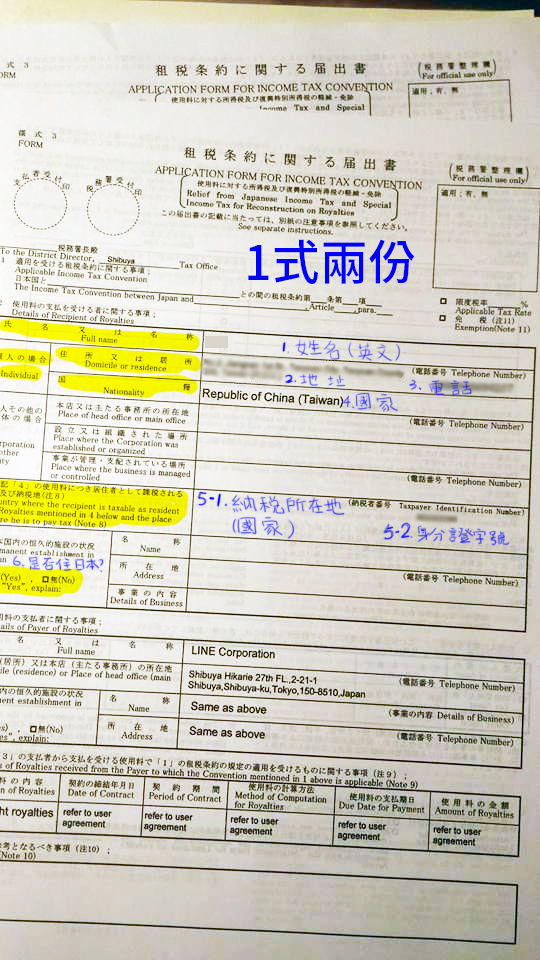 式 3
FORM
租税条約に関する届出書
APPLICATION FORM FOR INCOME TAX CONVENTION
(税務署整理欄
For official use only)
使用料に対する所得税及び復興特別所得税の軽減・免除
Income Tax and Special
適用;有、無
様式 3
FORM
租税条約に関する届出書
APPLICATION FORM FOR INCOME TAX CONVENTION
(税務署整理欄
For official use only)
支払者受付印
税務署受付印
使用料に対する所得税及び復興特別所得税の軽減・免除
Relief from Japanese Income Tax and Special
Income Tax for Reconstruction on Royalties
適用;有、無
この届出書の記載に当たっては、別紙の注意事項を参照してください。
See separate instructions.
1式兩份
税務署長殿
To the District Director, Shibuya Tax Office
1 適用を受ける租税条約に関する事項;
Applicable Income Tax Convention
日本国と との間の租税条約第 条第 項
The Income Tax Convention between Japan and ,Article ,para.
限度税率 %
Applicable Tax Rate
免 税 (注11)
Exemption(Note 11)
使用料の支払を受ける者に関する事項;
Details of Recipient of Royalties
氏名又は名称
Full name
1.姓名(英文)
人の場合
Individual
住所又は居所
Domicile or residence
(電話番号 Telephone Number)
2.地址
3.電話
国籍
Nationality
Republic of China (Taiwan)
4.國家
人その他の
体の場合
rporation
other
ity
本店又は主たる事務所の所在地
Place of head office or main office
(電話番号 Telephone Number)
設立又は組織された場所
Place where the Corporation was
established or organized
事業が管理・支配されている場所
Place where the business is managed
or controlled
(電話番号 Telephone Number)
記「4」の使用料につき居住者として課税される
及び納税地(注8)
untry where the recipient is taxable as resident
Royalties mentioned in 4 below and the place
ere he is to pay tax (Note 8)
5-1.納稅所在地
(國家)
(納税者番号 Taxpayer Identification Number)
5-2.身分證字號
本国内の恒久的施設の状況
manent establishment in
6.是否住日本?
(Yes) , 無(No)
"Yes", explain:
名称
Name
所在地
Address
(電話番号 Telephone Number)
事業の内容
Details of Business
用料の支払者に関する事項;
ails of Payer of Royalties
名又は名称
Full name
LINE Corporation
(居所)又は本店(主たる事務所)の所在地
ile (residence) or Place of head office (main
Shibuya Hikarie 27th FL.,2-21-1
Shibuya,Shibuya-ku,Tokyo,150-8510,Japan
(電話番号 Telephone Number)
内の恒久的施設の状況
nent establishment in
es) , 無(No)
es", explain:
名称
Name
Same as above
(事業の内容 Details of Business)
所在地
Address
Same as above
(電話番号 Telephone Number)
「3」の支払者から支払を受ける使用料で「1」の租税条約の規定の適用を受けるものに関する事項(注9);
s of Royalties received from the Payer to which the Convention mentioned in 1 above is applicable (Note 9)
料の内容
on of Royalties
契約の締結年月日
Date of Contract
契約期間
Period of Contract
使用料の計算方法
Method of Computation
for Royalties
使用料の支払期日
Due Date for Payment
使用料の金額
Amount of Royalties
ht royalties
refer to user
agreement
refer to user
agreement
refer to user
agreement
refer to user
agreement
refer to user
agreement
考となるべき事項(注10);
(Note 10)